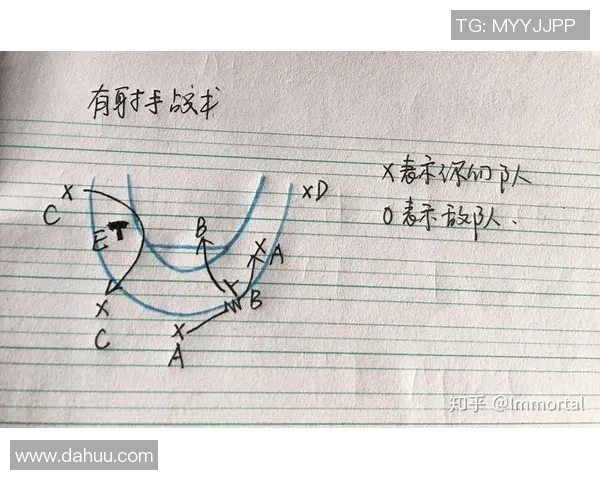 TG: MYYJJPP
有射手战术
X表示你们队
O表示敌队.
X
C
E T
X
C
B
X A
B
X
A
XD
知乎 @Immortal
www.dahuu.com